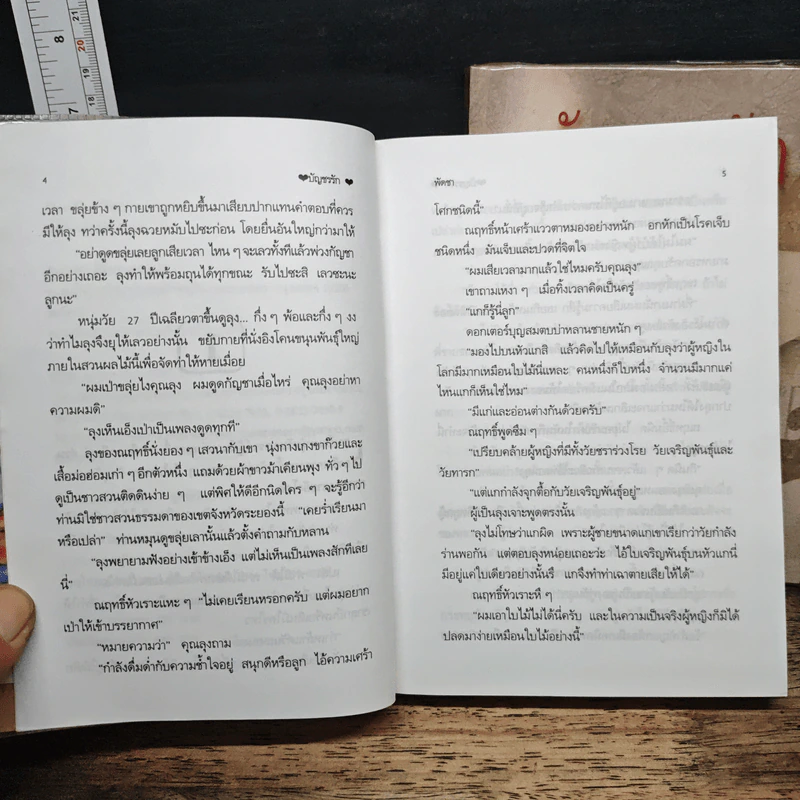 8
7
21
20
19
18
4
❤บัญชรรัก ❤
เวลา ขลุ่ยข้าง ๆ กายเขาถูกหยิบขึ้นมาเสียบปากแทนคำตอบที่ควร
มีให้ลุง ทว่าครั้งนี้ลุงฉวยหมับไปซะก่อน โดยยื่นอันใหญ่กว่ามาให้
“อย่าดูดขลุ่ยเลยลูกเสียเวลา ไหน ๆ จะเลวทั้งทีแล้วพ่วงกัญชา
อีกอย่างเถอะ ลุงทำให้พร้อมถุนได้ทุกขณะ รับไปซะสิ เลวซะนะ
ลูกนะ”
หนุ่มวัย 27 ปีเฉลียวตาขึ้นดูลุง... กึ่ง ๆ พ้อและกึ่ง ๆ งง
ว่าทำไมลุงจึงยุให้เลวอย่างนั้น ขยับกายที่นั่งอิงโคนขนุนพันธุ์ใหญ่
ภายในสวนผลไม้นี้เพื่อจัดท่าให้หายเมื่อย
“ผมเป่าขลุ่ยไงคุณลุง ผมดูดกัญชาเมื่อไหร่ คุณลุงอย่าหา
ความผมดิ”
“ลุงเห็นเอ็งเป่าเป็นเพลงดูดทุกที”
ลุงของณฤทธิ์นั่งยอง ๆ เสวนากับเขา นุ่งกางเกงขาก๊วยและ
เสื้อม่อฮ่อมเก่า ๆ อีกตัวหนึ่ง แถมด้วยผ้าขาวม้าเคียนพุง ทั่ว ๆ ไป
ดูเป็นชาวสวนติดดินง่าย ๆ แต่พิศให้ดีอีกนิดใคร ๆ จะรู้อีกว่า
ท่านมิใช่ชาวสวนธรรมดาของเขตจังหวัดระยองนี้ “เคยร่ำเรียนมา
หรือเปล่า” ท่านหมุนดูขลุ่ยเลานั้นแล้วตั้งคำถามกับหลาน
“ลุงพยายามฟังอย่างเข้าข้างเอ็ง แต่ไม่เห็นเป็นเพลงสักทีเลย
นี่”
ณฤทธิ์หัวเราะแหะ ๆ “ไม่เคยเรียนหรอกครับ แต่ผมอยาก
เป่าให้เข้าบรรยากาศ”
“หมายความว่า” คุณลุงถาม
“กำลังดื่มด่ำกับความช้ำใจอยู่ สนุกดีหรือลูก ไอ้ความเศร้า
พัดชา
5
โศกชนิดนี้”
ณฤทธิ์หน้าเศร้าแววตาหมองอย่างหนัก อกหักเป็นโรคเจ็บ
ชนิดหนึ่ง มันเจ็บและปวดที่จิตใจ
“ผมเสียเวลามากแล้วใช่ไหมครับคุณลุง”
เขาถามเหงา ๆ เมื่อทิ้งเวลาคิดเป็นครู่
“แกก็รู้นี่ลูก”
ดอกเตอร์บุญสมตบบ่าหลานชายหนัก ๆ
“มองไปบนหัวแกสิ แล้วคิดไปให้เหมือนกับลุงว่าผู้หญิงใน
โลกมีมากเหมือนใบไม้นี่แหละ คนหนึ่งก็ใบหนึ่ง จำนวนมีมากแค่
ไหนแกก็เห็นใช่ไหม”
“มีแก่และอ่อนต่างกันด้วยครับ”
ณฤทธิ์พูดซึม ๆ
“เปรียบคล้ายผู้หญิงที่มีทั้งวัยชราร่วงโรย วัยเจริญพันธุ์และ
วัยทารก”
“แต่แกกำลังจุกตื้อกับวัยเจริญพันธุ์อยู่”
ผู้เป็นลุงเจาะพูดตรงนั้น
“ลุงไม่โทษว่าแกผิด เพราะผู้ชายขนาดแกเขาเรียกว่าวัยกำลัง
ร่านพอกัน แต่ตอบลุงหน่อยเถอะว่ะ ไอ้ใบเจริญพันธุ์บนหัวแกนี่
มีอยู่แค่ใบเดียวอย่างนั้นรึ แกจึงทำท่าเฉาตายเสียให้ได้”
ณฤทธิ์หัวเราะหึ ๆ
“ผมเอาใบไม้ไม่ได้นี่ครับ และในความเป็นจริงผู้หญิงก็มิได้
ปลดมาง่ายเหมือนใบไม้อย่างนี้”